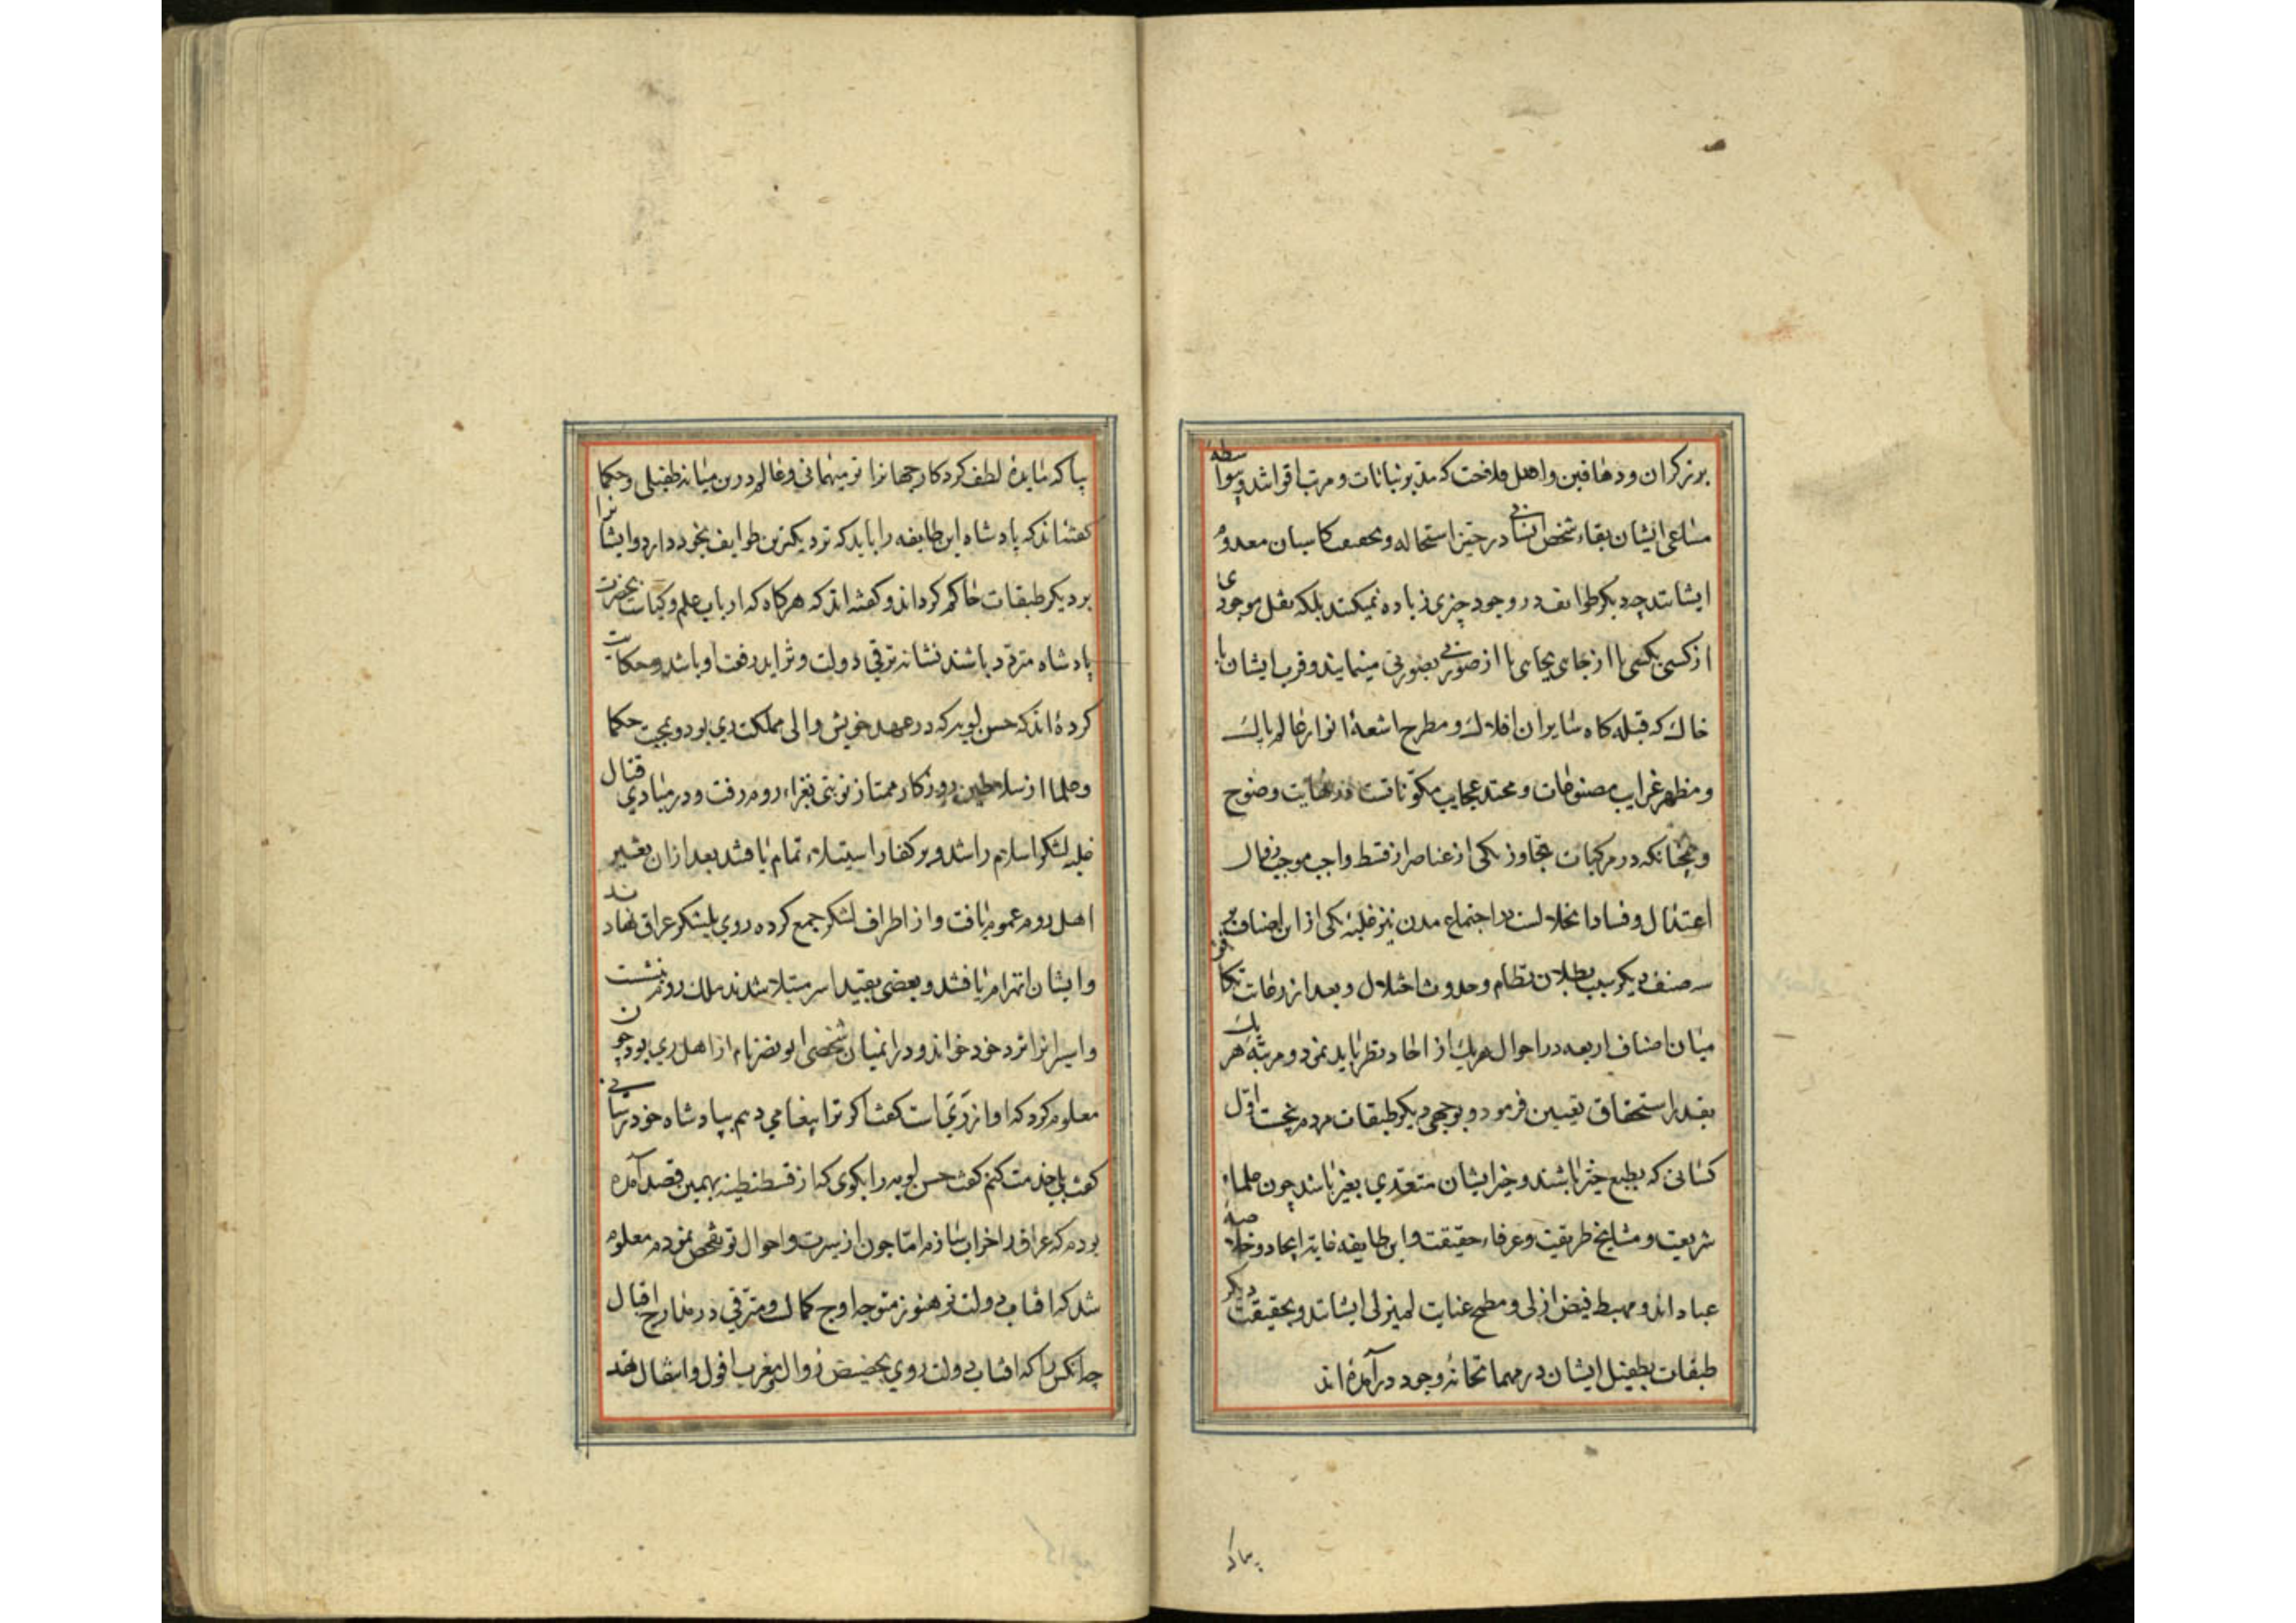 برزگران و دهاقین و اهل فلاحت که مدبر نباتات و مرتب اقواتند و بیواسطهٔ
مساعی ایشان بقاء شخص انسانی در حیز استحاله و بحقیقت کاسبان معدوم
ایشانند چه دیگر طوایف در وجود چیزی زیاده نمیکنند بلکه نقل موجودی
از کسی بکسی یا از جای بجای یا از صورتی بصورتی مینمایند و قرب ایشان با
خاک که قبله کاه سایران افلاک و مطرح اشعهٔ انوار عالم پاک
و مظهر غرایب مصنوعات و محتد عجایب مکوّناتست در غایت وضوح
و همچنانکه در مرکبات تجاوز یکی از عناصر از قسط واجب موجب زوال
اعتدال و فساد انحلال است در اجتماع مدن نیز غلبهٔ یکی از این اصناف بر
سه صنف دیگر سبب بطلان نظام و حدوث اختلال و بعد از رعایت تکافو
میان اصناف اربعه در احوال هر یک از احاد نظر باید نمود و مرتبهٔ هر یک
بقدر استحقاق تعیین فرمود و بوجهی دیگر طبقات مردم پنجست اول
کسانی که بطبع خیّر باشند و خیر ایشان متعدی بغیر باشد چون علماء
شریعت و مشایخ طریقت و عرفاء حقیقت و این طایفه غایة ایجاد و خلاصهٔ
عباد اند و مهبط فیض ازلی و مطمح عنایت لم یزلی ایشانند و بحقیقت دیگر
طبقات بطفیل ایشان در مهمانخانهٔ وجود در آمده اند
بیا که
بیا که مایدهٔ لطف کردکار جهانرا تو میهمانی و عالم درین میانه طفیلی و حکما
کفته اند که پادشاه این طایفه را باید که نزدیکترین طوایف بخود دارد و ایشانرا
بر دیکر طبقات حاکم کرداند و کفته اند که هرکاه که ارباب علم و کیاست بحضرت
پادشاه متردّد باشند نشانه ترقی دولت و تزاید رفعت او باشد و حکایت
کرده اند که حسن بویه که در عهد خویش والی مملکت ری بود و بمحبت حکما
و علما از سلاطین روزکار ممتاز نوبتی بغزاء روم رفت و در مبادی قتال
غلبه لشکر اسلام را شد و بر کفار استیلاء تمام یافتند بعد از آن نفیر
اهل روم عموم یافت و از اطراف لشکر جمع کرده روی بلشکر عراق نهادند
و ایشان انهزام یافتند و بعضی بقید اسر مبتلا شدند ملک روم بنشست
و اسیرانرا نزد خود خواند و در آن میان شخصی ابو نصر نام از اهل ری بود چون
معلوم کرد که او از ری است کفت اکر ترا پیغامی دهم بپادشاه خود رسانی
کفت بلی خدمت کنم کفت حسن بویه را بکوی که از قسطنطینه بهمین قصد آمده
بودم که عراق را خراب سازم امّا چون از سیرت و احوال تو تفحص نمودم معلوم
شد که آفتاب دولت تو هنوز متوجه اوج کمال و مترقی در معارج اقبال
چه آنکس را که آفتاب دولت روی بحضیض زوال و مغرب افول و انتقال نهد